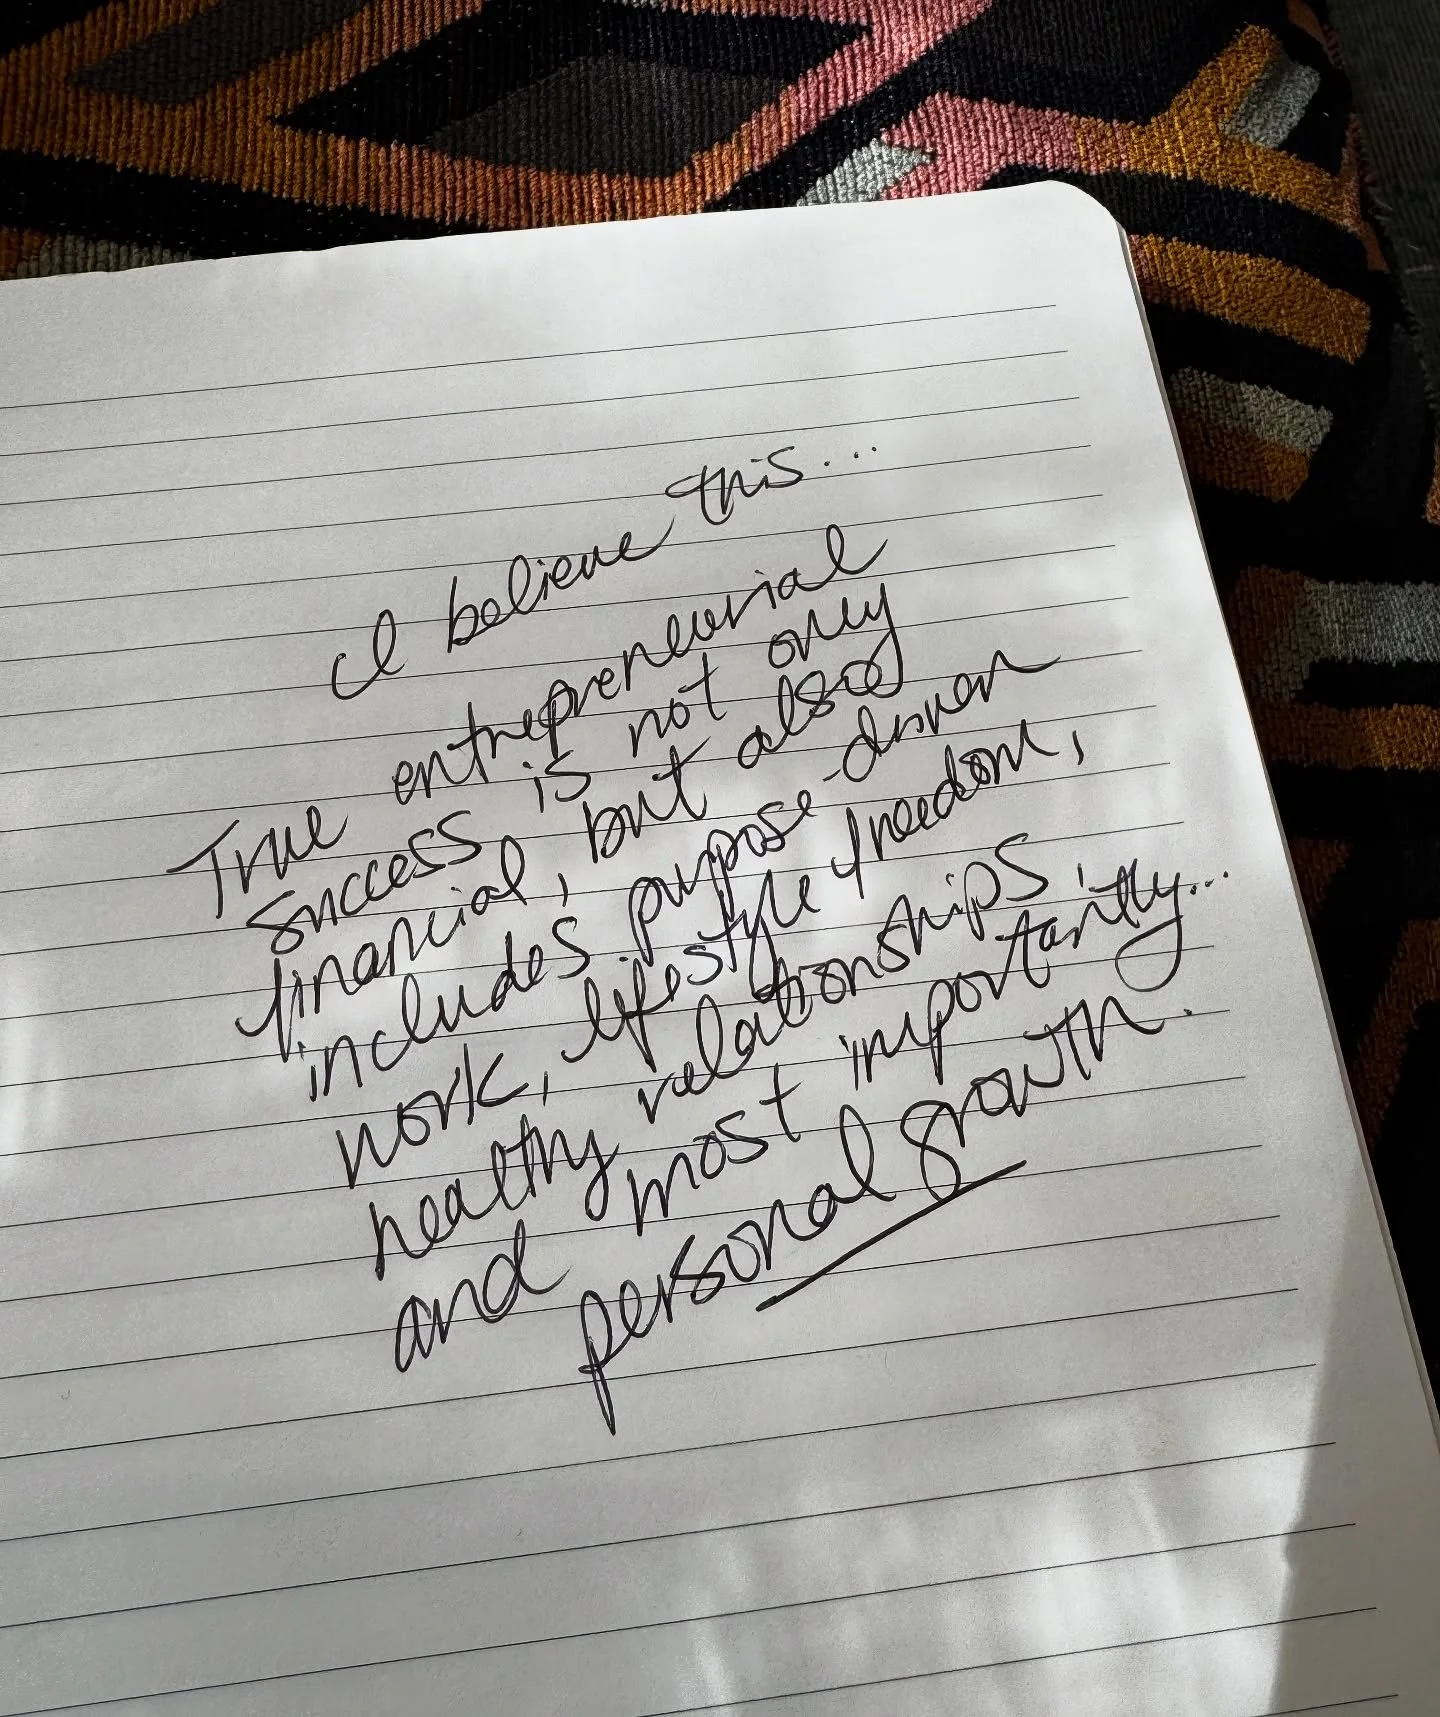 I believe this...
True entrepreneurial
success is not only
financial, but also
includes purpose-driven
work, lifestyle freedom,
healthy relationships,
and most importantly...
personal growth.